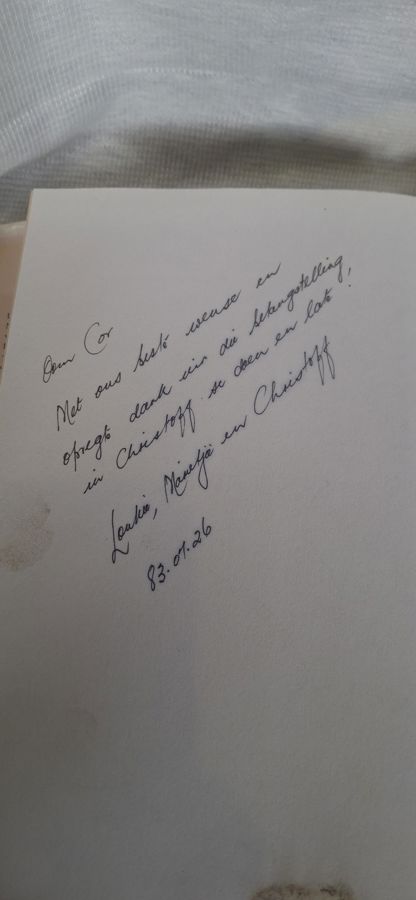 Oom Cor
Met ons beste wense en
opregte dank vir die belangstelling,
in Christoff se doen en late!
en Christoff
83.07.26